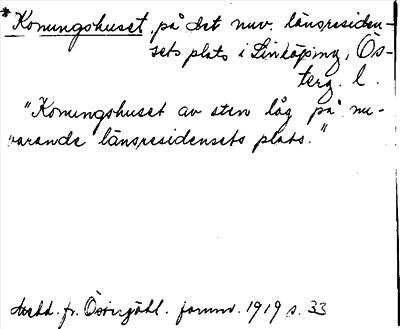 *Konungshuset på det nuv. länsresiden-
sets plats i Linköping, Ös-
terg. l.
"Konungshuset av sten låg på nu-
varande länsresidensets plats."
Medd. fr. Östergötl. fornm. 1919 s. 33